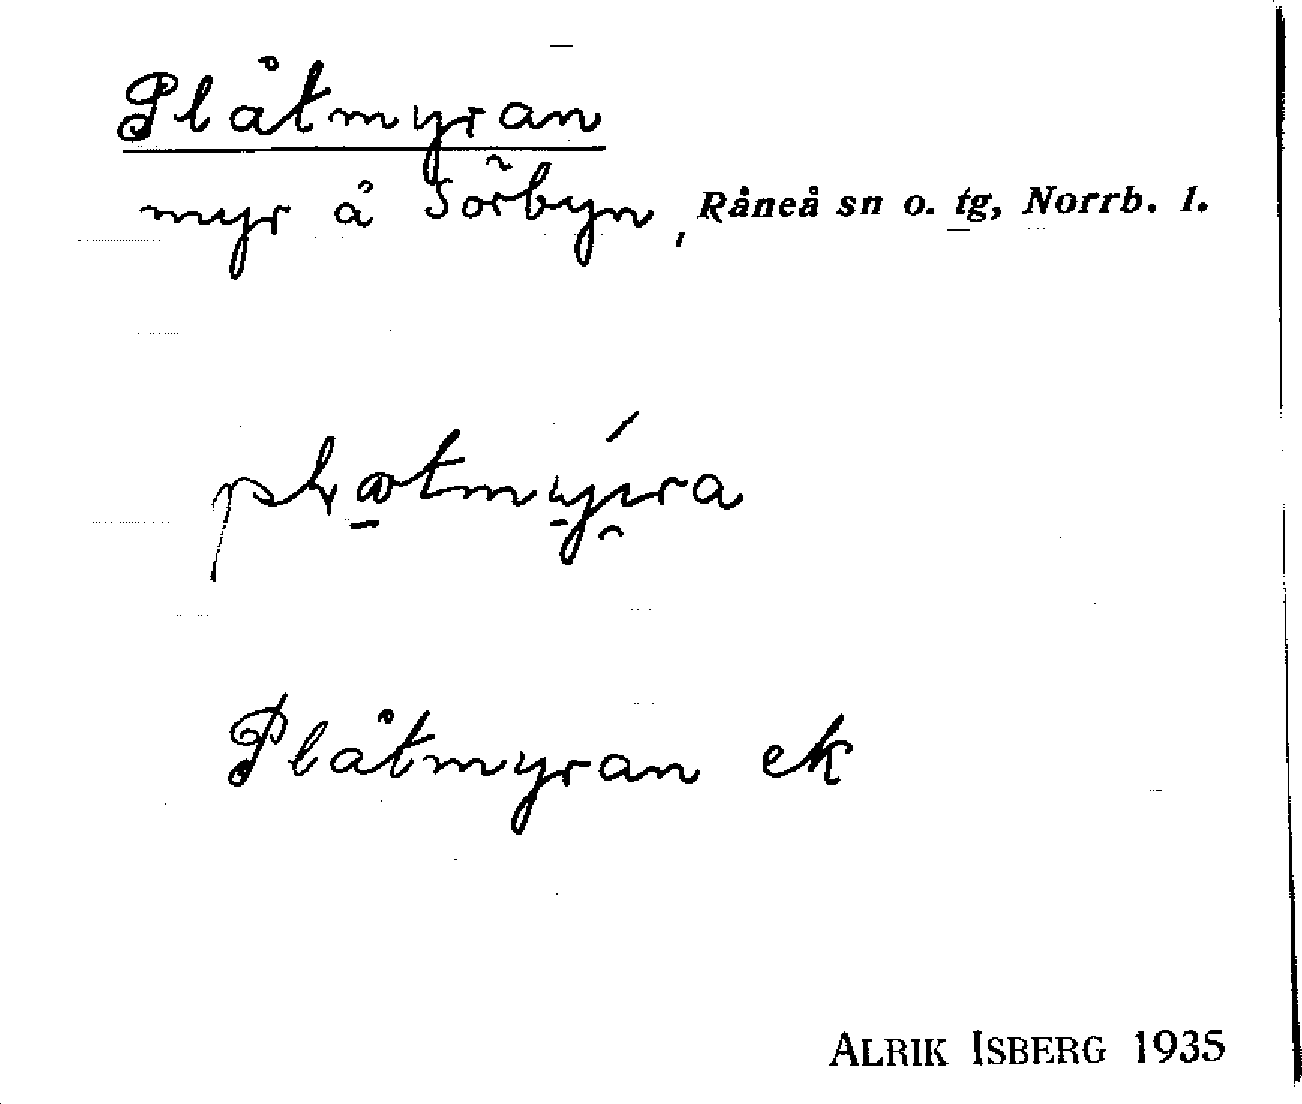 Plåtmyran
myr å Sörbyn, Råneå sn o. tg, Norrb. l.
Plåtmyran ek
ALRIK ISBERG 1935